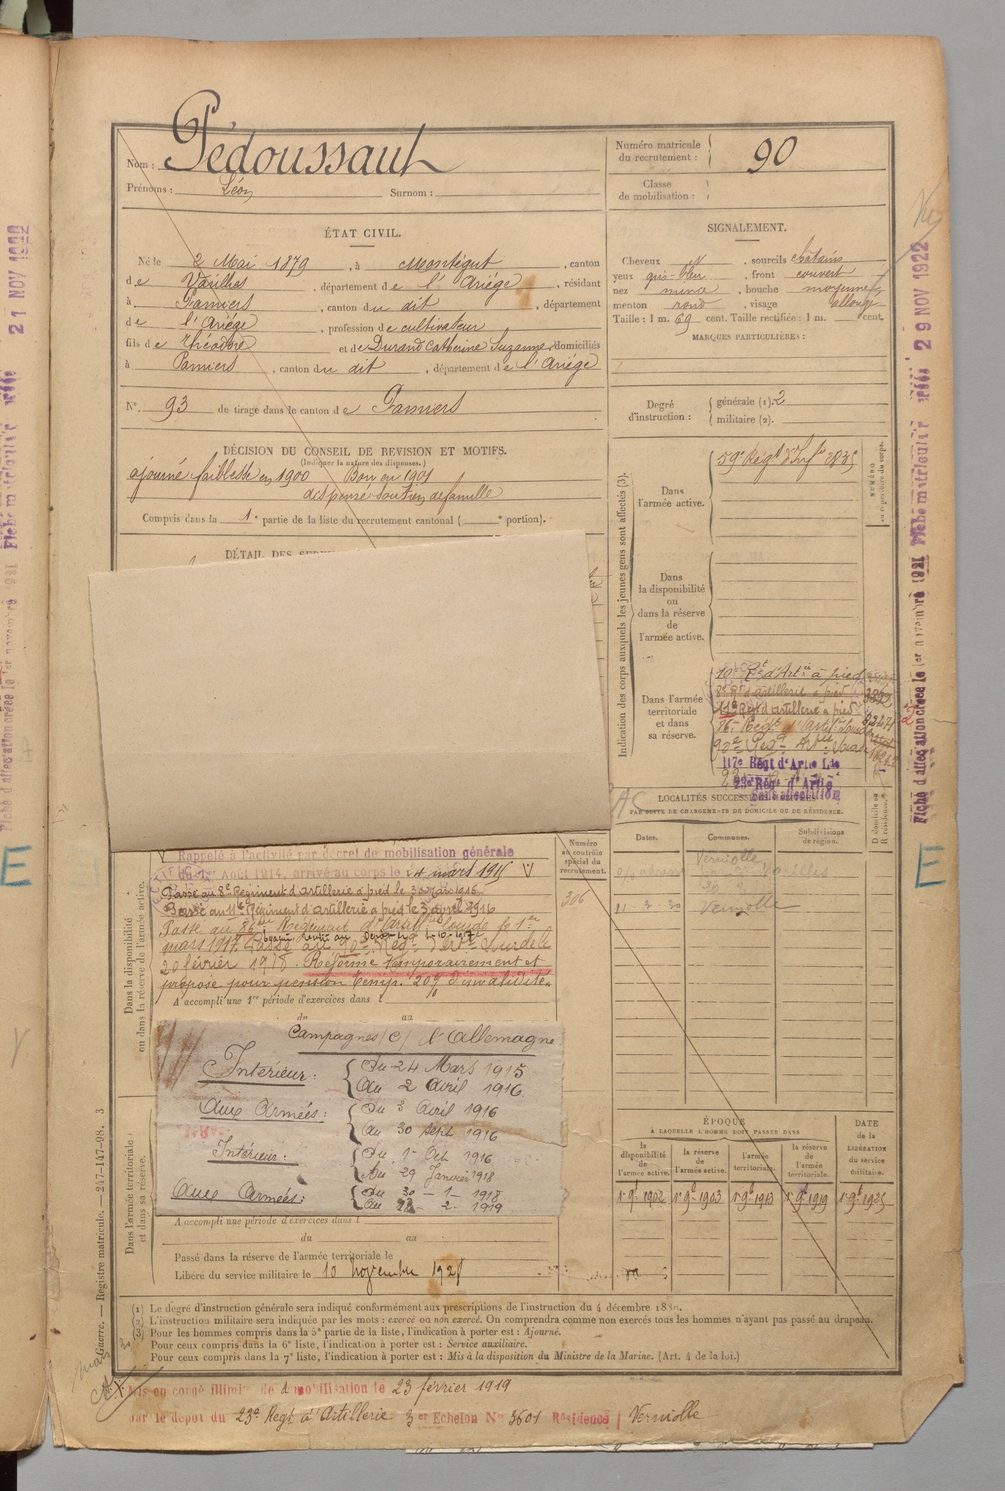 Nom : Pédoussaut
Prénoms : Léon Surnom :
Numéro matricule du recrutement : 90
Classe de mobilisation :
ÉTAT CIVIL.
Né le 2 Mai 1879, à Montégut, canton
de Varilhes, département de l'Ariège, résidant
à Pamiers, canton du dit, département
de l'Ariège, profession de cultivateur
fils de Théodore et de Durand Catherine Suzanne, domiciliés
à Pamiers, canton du dit, département de l'Ariège
N° 93 de tirage dans le canton de Pamiers
SIGNALEMENT.
Cheveux , sourcils châtains
yeux gris-bleu, front couvert
nez mince, bouche moyenne
menton rond, visage allongé
Taille : 1 m. 69 cent. Taille rectifiée : 1 m. cent.
MARQUES PARTICULIÈRES :
Degré d'instruction : générale (1). 2
militaire (2).
DÉCISION DU CONSEIL DE REVISION ET MOTIFS.
(Indiquer la nature des dispenses.)
ajourné faiblesse en 1900 Bon en 1901
dispensé soutien de famille
Compris dans la 1e partie de la liste du recrutement cantonal ( e portion).
DÉTAIL DES
Indication des corps auxquels les jeunes gens sont affectés (3).
NUMÉRO
Dans l'armée active.
59e Régt d'Infie
Dans la disponibilité ou dans la réserve de l'armée active.
Dans l'armée territoriale et dans sa réserve.
10e Rt d'Artie à pied
8e Rt d'artillerie à pied
11e Régt d'artillerie à pied
86e Régt d'Artie Lourde
90e Régt
117e Régt d'Artie Lde
23e Régt d'Artie
Sans affectation
LOCALITÉS SUCCESSIVES
PAR SUITE DE CHANGEMENTS DE DOMICILE OU DE RÉSIDENCE.
Dates. Communes. Subdivisions de région.
D domicile ou R résidence.
Verniolle
Varilhes
21-3-30 Verniolle
Numéro au contrôle spécial du recrutement.
306
Dans la disponibilité ou dans la réserve de l'armée active.
Rappelé à l'activité par décret de mobilisation générale
du 1er Août 1914, arrivé au corps le 24 mars 1915
Passé au 8e Régiment d'artillerie à pied le
Passé au 11e Régiment d'artillerie à pied le 3 avril 1916
Passé au 86e Régiment d'Artillerie lourde le 1er
mars 1917. Passé au 90e Rég. d'Art. Lourde le
20 février 1918. Réformé temporairement et
proposé pour pension temp. 20% d'invalidité.
A accompli une 1re période d'exercices dans l
du au
Campagnes C/ l'Allemagne
Intérieur : Du 24 Mars 1915
Au 2 Avril 1916
Aux Armées : Du 3 Avril 1916
Au 30 Sept 1916
Intérieur : Du 1er Oct 1916
Au 29 Janvier 1918
Aux Armées : Du 30 - 1 - 1918
Au 22 - 2 - 1919
Dans l'armée territoriale et dans sa réserve.
A accompli une période d'exercices dans l
du au
Passé dans la réserve de l'armée territoriale le
Libéré du service militaire le 10 novembre 1928
ÉPOQUE
A LAQUELLE L'HOMME DOIT PASSER DANS
la disponibilité de l'armée active.
la réserve de l'armée active.
l'armée territoriale.
la réserve de l'armée territoriale.
DATE de la LIBÉRATION du service militaire.
1er 9bre 1902 1er 9bre 1903 1er 9bre 1913 1er 9bre 1919 1er 9bre 1925
(1) Le degré d'instruction générale sera indiqué conformément aux prescriptions de l'instruction du 4 décembre 1889.
(2) L'instruction militaire sera indiquée par les mots : exercé ou non exercé. On comprendra comme non exercés tous les hommes n'ayant pas passé au drapeau.
(3) Pour les hommes compris dans la 5e partie de la liste, l'indication à porter est : Ajourné.
Pour ceux compris dans la 6e liste, l'indication à porter est : Service auxiliaire.
Pour ceux compris dans la 7e liste, l'indication à porter est : Mis à la disposition du Ministre de la Marine. (Art. 4 de la loi.)
Mis en congé illimité de démobilisation le 23 février 1919
par le dépôt du 23e Régt d'Artillerie 3er Echelon N° 3601 Résidence Verniolle
Guerre. — Registre matricule. — 247-147-98. 3
Fiche d'affectation créée le 1er novembre 1921 Fiche matriculaire créée 29 NOV 1922
21 NOV 1922
E
E